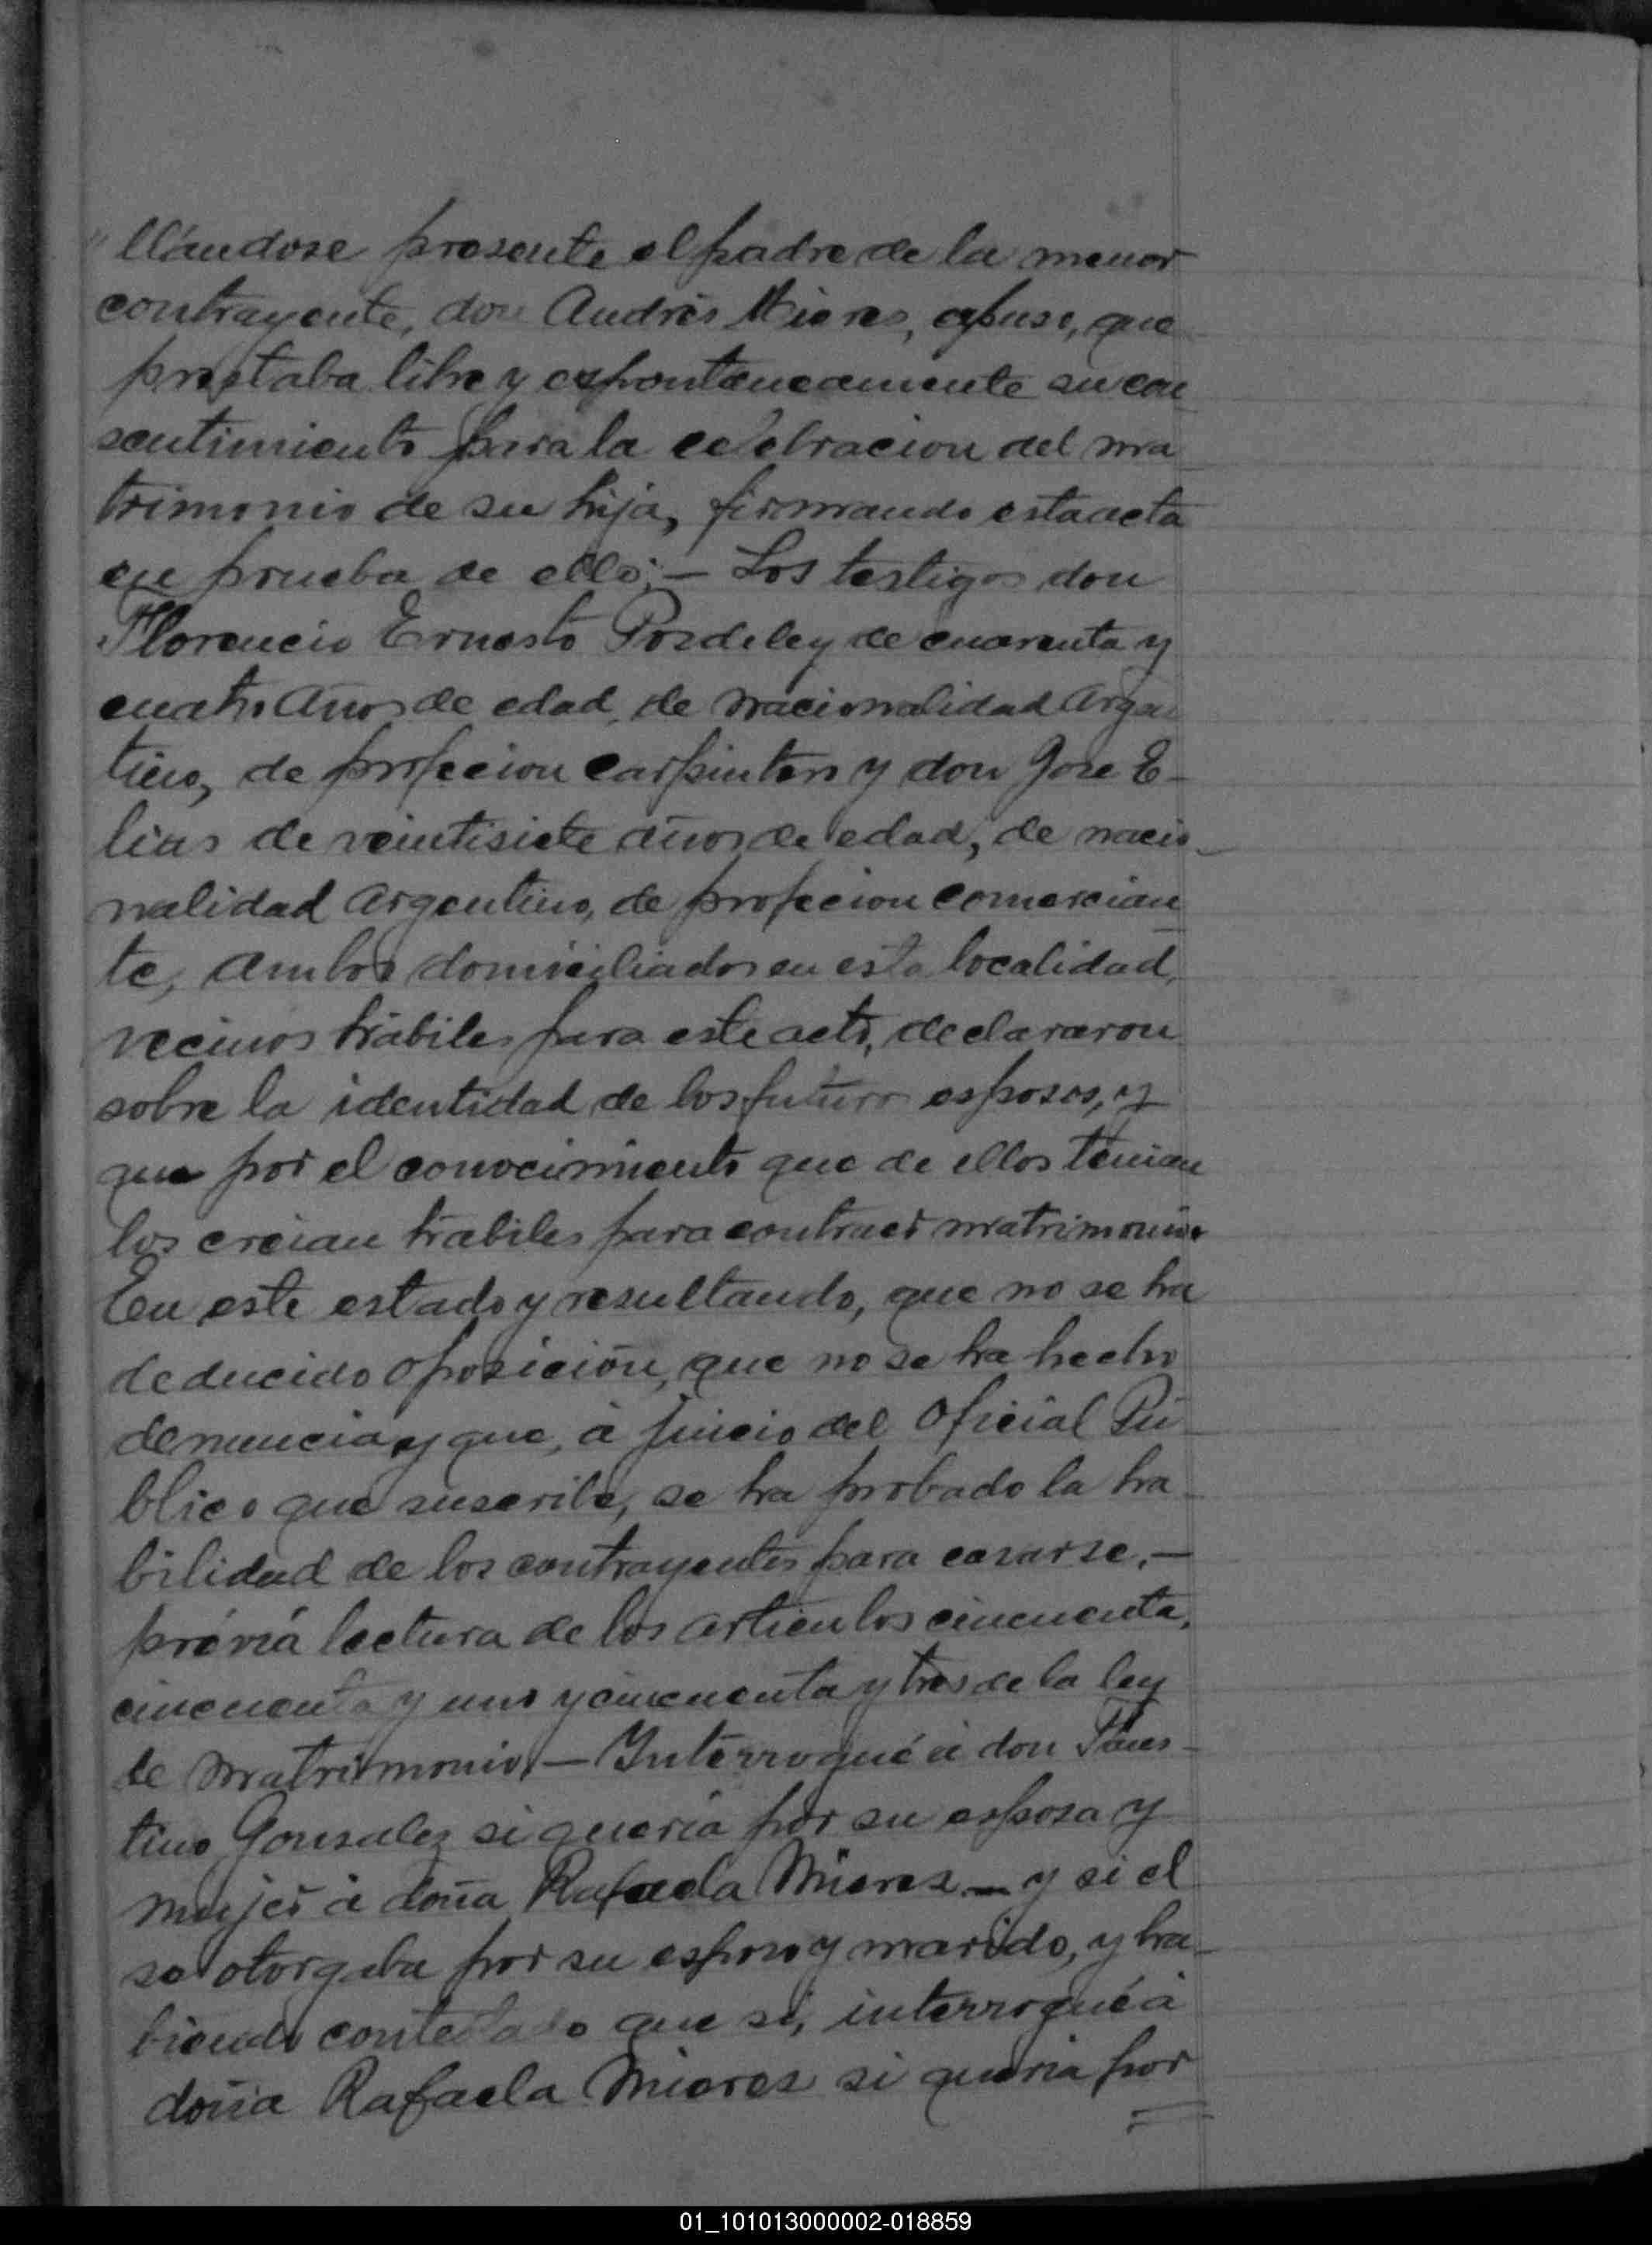 llándose presente el padre de la menor
contrayente, don Andrés Mieres, espuso, que
prestaba libre y espontaneamente su con
sentimiento para la celebracion del ma
trimonio de su hija, firmando esta acta
en prueba de ello; — Los testigos don
Florencio Ernesto de cuarenta y
cuatro años de edad, de nacionalidad Argen
tino, de profecion carpintero y don Jose E-
lias de veintisiete años de edad, de nacio-
nalidad Argentino, de profecion comercian
te, ambos domiciliados en esta localidad,
vecinos hábiles para este acto, declararon
sobre la identidad de los futuro esposos, y
que por el conocimiento que de ellos tenian
los creian habiles para contraer matrimonio
En este estado y resultando, que no se ha
deducido oposición, que no se ha hecho
denuncia y que, á juicio del Oficial Pú-
blico que suscribe, se ha probado la ha-
bilidad de los contrayentes para casarse. —
prévia lectura de los articulos cincuenta,
cincuenta y uno y cincuenta y tres de la ley
de matrimonio, — Interrogué á don Faus-
tino Gonsalez si quería por su esposa y
mujer á doña Rafaela Mieres — y si el
se otorgaba por su esposo y marido, y ha-
biendo contestado que si, interrogué á
doña Rafaela Mieres si queria por
01_101013000002-018859